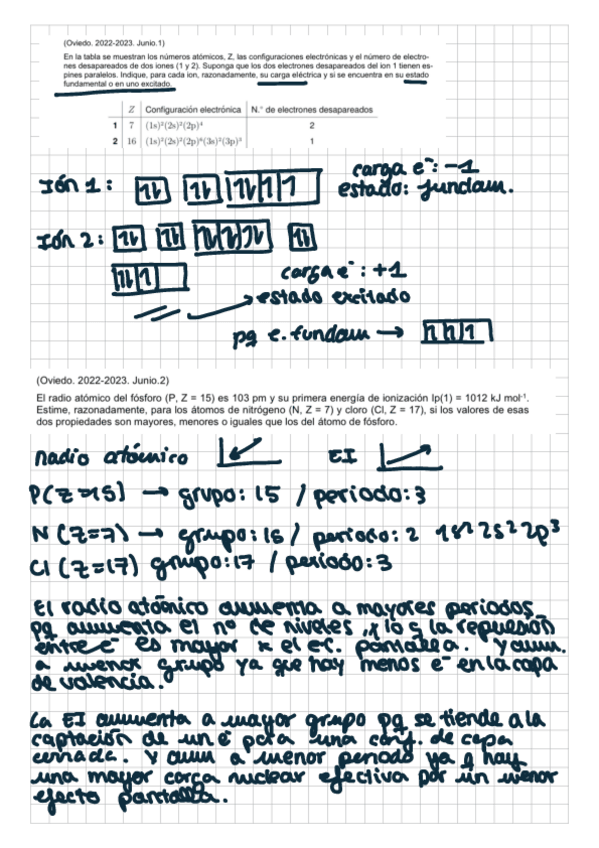 (Oviedo. 2022-2023. Junio.1)
En la tabla se muestran los números atómicos, Z, las configuraciones electrónicas y el número de electro-
nes desapareados de dos iones (1 y 2). Suponga que los dos electrones desapareados del ion 1 tienen es-
pines paralelos. Indique, para cada ion, razonadamente, su carga eléctrica y si se encuentra en su estado
fundamental o en uno excitado.
Z Configuración electrónica N.° de electrones desapareados
1 7 (1s)²(2s)²(2p)⁴ 2
2 16 (1s)²(2s)²(2p)⁶(3s)²(3p)³ 1
Ión 1: carga e⁻: -1
estado: fundam.
Ión 2:
carga e⁻: +1
→ estado excitado
pq e. fundam →
(Oviedo. 2022-2023. Junio.2)
El radio atómico del fósforo (P, Z = 15) es 103 pm y su primera energía de ionización Ip(1) = 1012 kJ mol⁻¹.
Estime, razonadamente, para los átomos de nitrógeno (N, Z = 7) y cloro (Cl, Z = 17), si los valores de esas
dos propiedades son mayores, menores o iguales que los del átomo de fósforo.
radio atómico EI
P(Z=15) → grupo: 15 / periodo: 3
N (Z=7) → grupo: 15 / periodo: 2 1s² 2s² 2p³
Cl (Z=17) grupo: 17 / periodo: 3
El radio atómico aumenta a mayores periodos
pq aumenta el nº de niveles, x lo q la repulsión
entre e⁻ es mayor x el ef. pantalla. Y aum.
a menor grupo ya que hay menos e⁻ en la capa
de valencia.
La EI aumenta a mayor grupo pq se tiende a la
captación de un e⁻ para una conf. de capa
cerrada. Y aum a menor periodo ya q hay
una mayor carga nuclear efectiva por un menor
efecto pantalla.